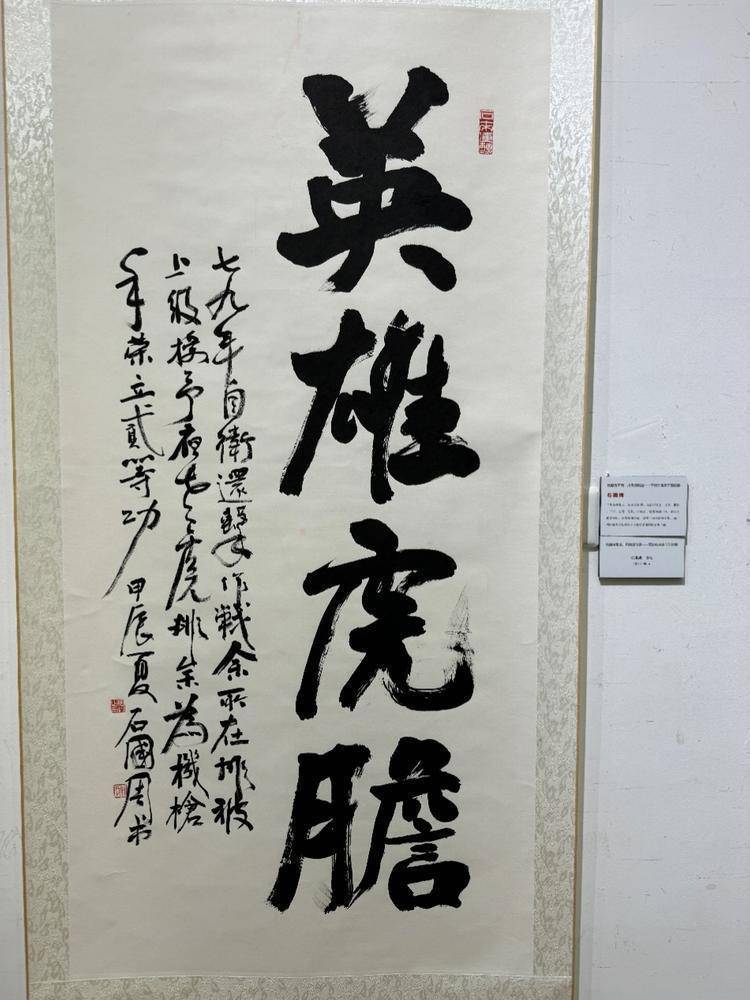 英雄虎膽
七九年自衛還擊作戰余所在排被
上級授予夜老虎排余為機槍
手榮立貳等功 甲辰夏 石國周书